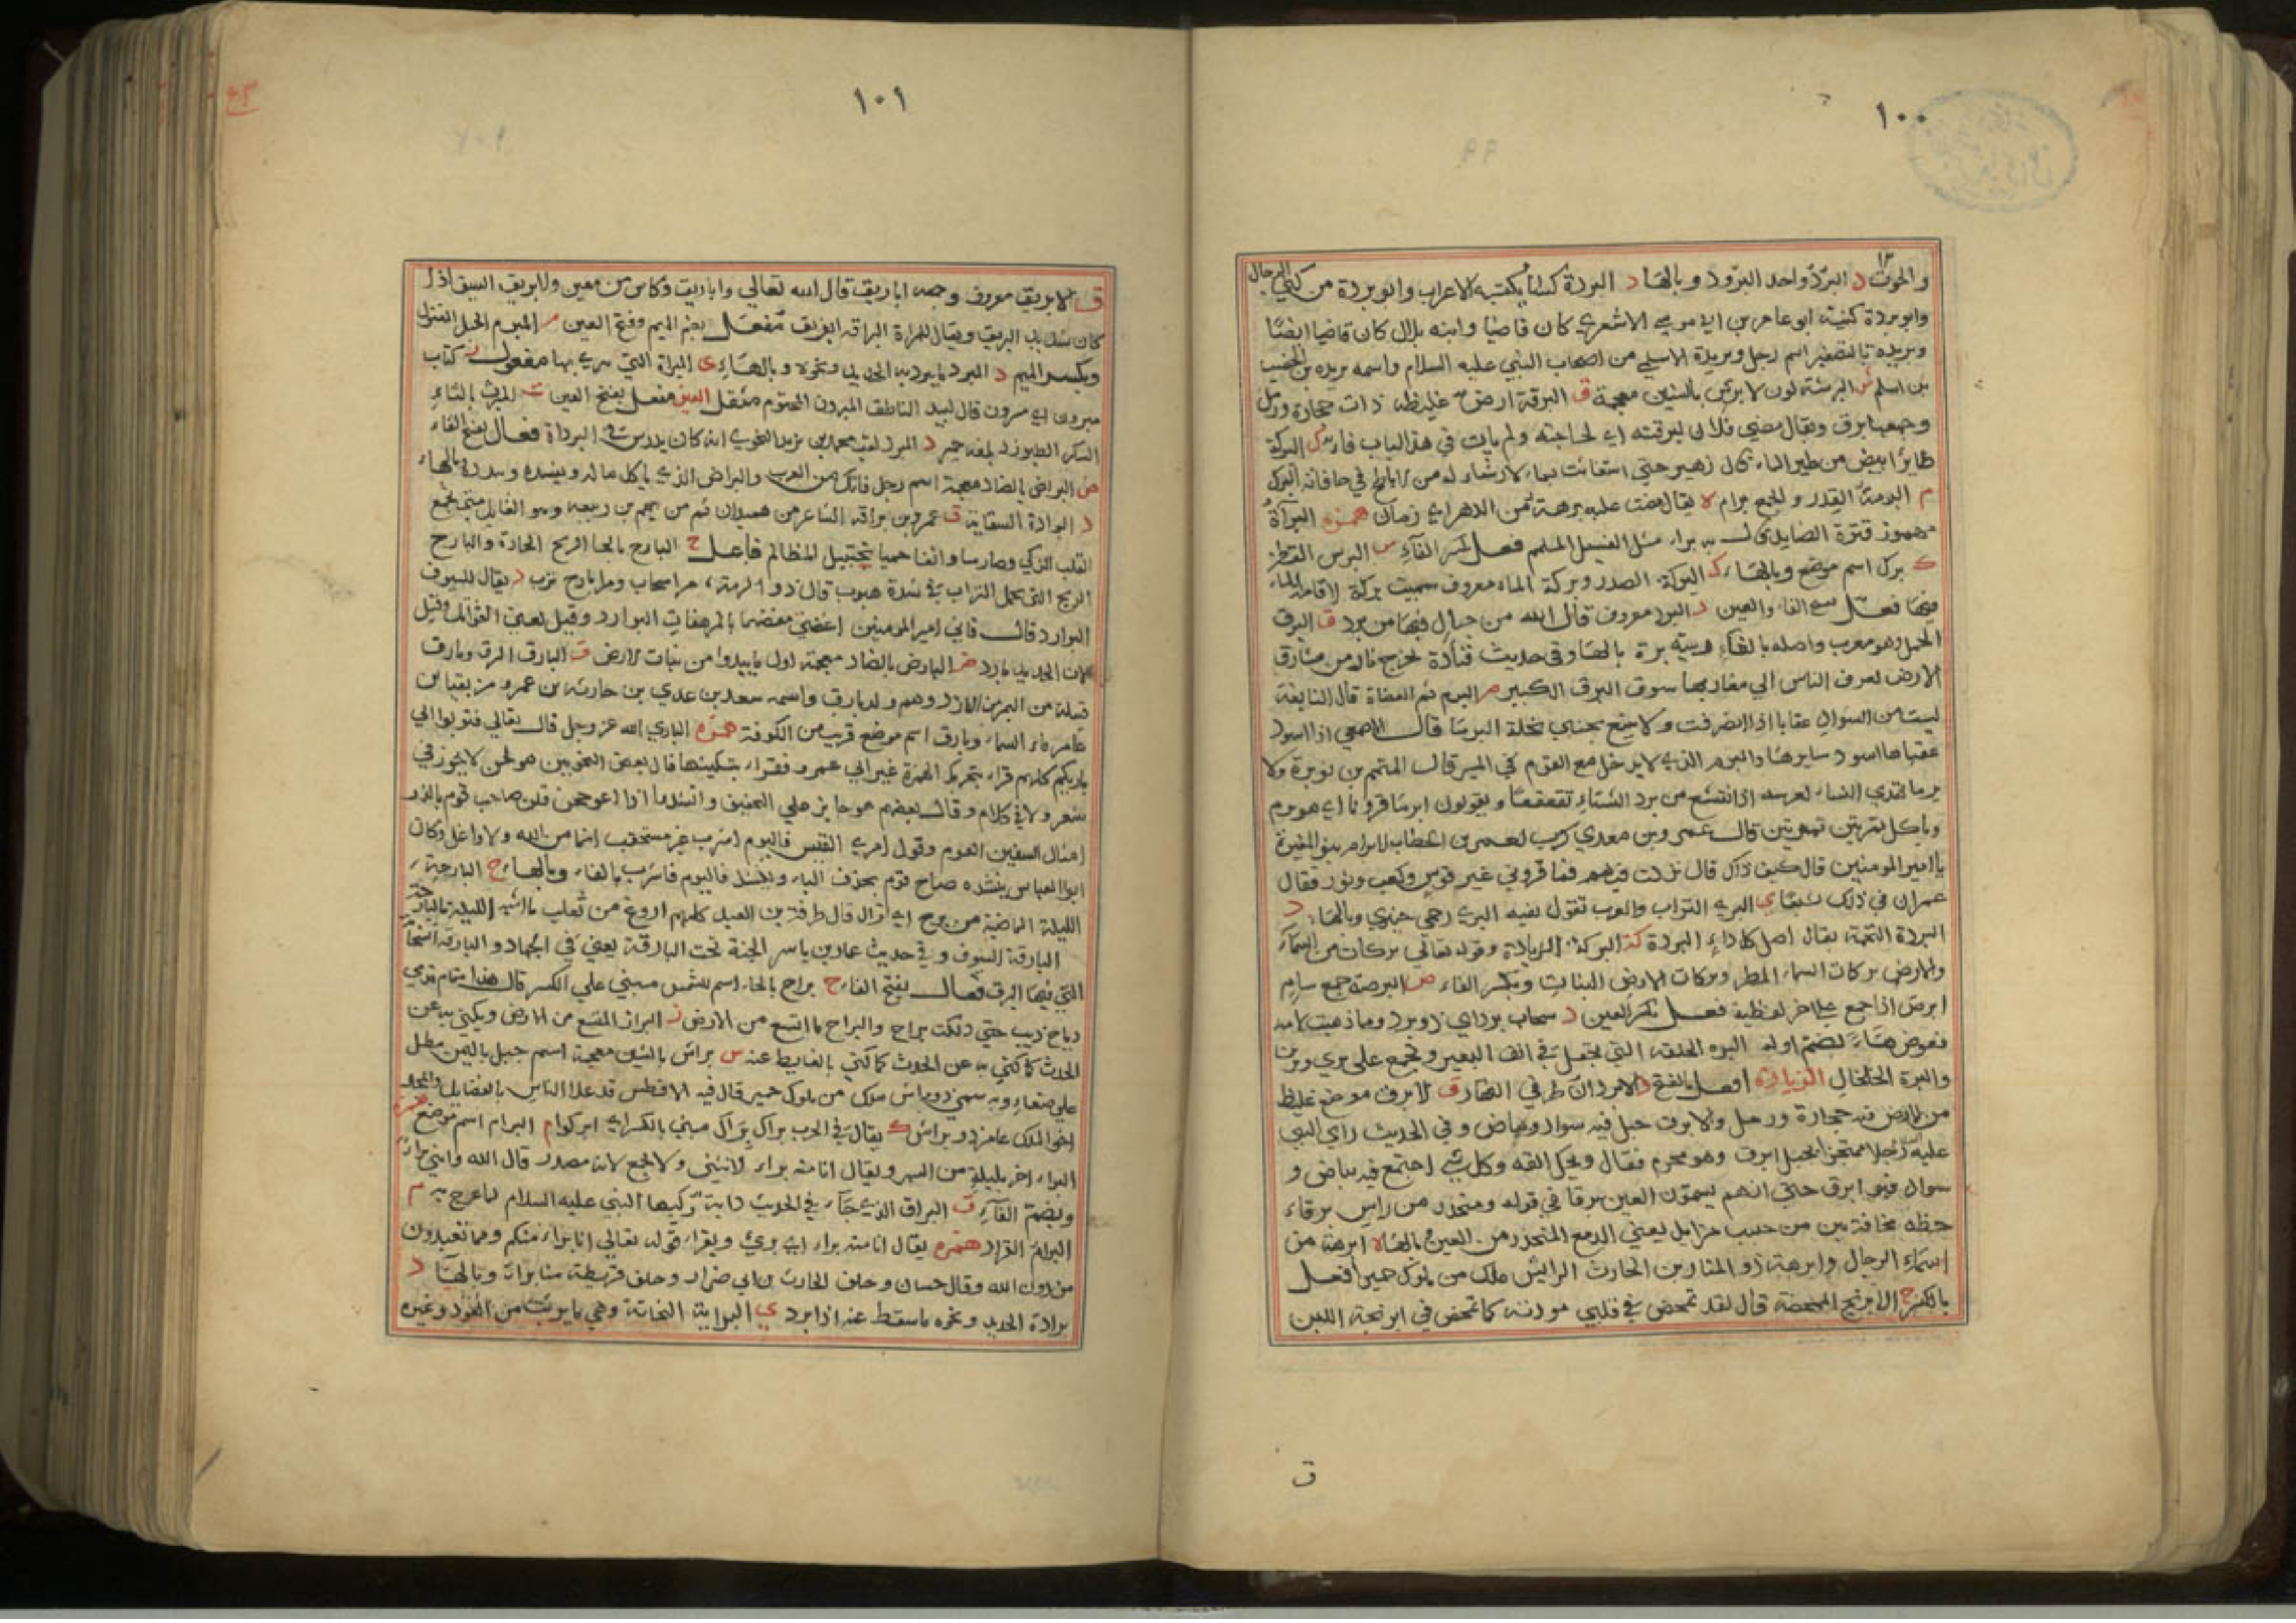 ١٠٠
والحوت د البرد واحد البرود وبالهاء د البردة كساء يكتسيه الاعراب وابو بردة من كنى الرجال
وابو بردة كنيت ابو عامر بن ابي موسى الاشعري كان قاضيا وابنه بلال كان قاضيا ايضا
وبريده بالتصغير اسم رجل وبريدة الاسلمي من اصحاب النبي عليه السلام واسمه بريده بن الحصيب
بن اسلم ش البرشة لون الابرش بالشين معجمة ق البرقة ارض غليظة ذات حجارة ورمل
وجمعها برق ويقال مضى فلان لبرقته اي لحاجته ولم يات في هذا الباب فا ك البركة
طايرا ابيض من طير الماء قال زهير حتى استغاثت بماء لا رشاء له من الاباطح في حافاته البرك
م البرمة القدر والجمع برام ه يقال مضت عليه برهة من الدهر اي زمان همزه البرأة
مهموز قترة الصايد براء مثل الفسيل المكمم فعل بكسر الفاء س البرس القطن
ك برك اسم موضع وبالهاء ك البركة الصدر وبركة الماء معروف سميت بركة لاقامة الماء
فيها فعل بفتح الفاء والعين د البرد معروف قال الله من جبال فيها من برد ق البرق
الحمل وهو معرب واصله بالفا وبالهاء وفي حديث قتادة تخرج نار من مشارق
الارض تعرف الناس الى مغاربها سوق البرق الكبير م البرم ثمر العضاة قال النابغة
ليست من السود اعقابا اذا انصرفت ولا تبيع بجنبي نخلة البرما قال الاصمعي اذا اسود
عقباها اسود سايرها والبرم الذي لا يدخل مع القوم في الميسر قال المتمم بن نويرة ولا
برما تهدي النساء لعرسه اذا القشع من برد الشتاء تقعقعا ويقولون ابرما قرونا اي هو برم
وياكل تمرتين تمرتين قال عمرو بن معدي كرب لعمر بن الخطاب لابرام بنو المغيرة
يا امير المومنين قال كيف ذاك قال نزلت فيهم فما قروني غير قوس وكعب وثور فقال
عمر ان في ذلك شبعا ي البري التراب والعرب تقول بفيه البري وحمى خيبري وبالهاء د
البردة التخمة يقال اصل كل داء البردة ك البركة الزيادة وقوله تعالى بركات من السماء
والارض بركات السماء المطر وبركات الارض النبات وبكسر الفاء ص البرصة جمع سام
ابرص اذا جمع على اخر لفظية فعل بكسر العين د سحاب برد اي ذو برد وما ذهبت لامه
فعوض هاء بضم اوله البره الحلقة التي تجعل في انف البعير وتجمع على بري وبرين
والبرة الخلخال الزيادة أفعل بالفتح د الابردان طرفي النهار ق الابرق موضع غليظ
من الارض فيه حجارة ورمل والابرق حبل فيه سواد وبياض وفي الحديث راي النبي
عليه رجلا محتجزا بحبل ابرق وهو محرم فقال ويحك القه وكل شي اجتمع فيه بياض و
سواد فهو ابرق حتى انهم يسمون العين برقا في قوله ومنحدر من راس برقاء
حطه مخافة بين من حبيب مزايل يعني الدمع المنحدر من العين وبالهاء ه ابرهة من
اسماء الرجال وابرهة ذو المنار بن الحارث الرايش ملك من ملوك حمير إفعل
بالكسر ج الابرنج الممخضة قال لقد تمخض في قلبي مودته كما تمخض في ابرنجه اللبن
ق
١٠١
ق الابريق معروف وجمعه اباريق قال الله تعالى واباريق وكاس من معين والابريق السيف اذا
كان شديد البريق ويقال للمراة البراقه ابريق مفعل بضم الميم وفتح العين م المبرم الحبل المفتول
وبكسر الميم د المبرد ما يبرد به الحديد ونحوه وبالهاء ي المبراة التي يبرى بها مفعول ز كتاب
مبروز اي مبرون قال لبيد الناطق المبروز المختوم مثقل العين مفعل بفتح العين ت المبرت بالتاء
السكر الطبرزد بلغة حمير د المبرد لقب محمد بن يزيد النحوي انه كان يدرس في البرداة فعال بفتح الفاء
ض البراض بالضاد معجمة اسم رجل فاتك من العرب والبراض الذي ياكل ماله ويفسده وبالهاء
د البرادة السقاية ق عمرو بن براقه الشاعر من همدان ثم من نهم بن ربيعه وهو القايل متى تجمع
القلب الذكي وصارما وانفا حميا تجتنبك المظالم فاعل ح البارح بالحا الريح الحارة والبارح
الريح التي تحمل التراب في شدة هبوب قال ذو الرمة مرا سحاب ومرا بارح ترب د يقال للسيوف
البوارد قال فان امير المومنين اغصني مغصهما بالمرهفات البوارد وقيل يعني القواتل وقيل
لان الحديد بارد ض البارض بالضاد معجمة اول ما يبدوا من نبات الارض ق البارق البرق وبارق
قبيلة من اليمن من الازد وهم ولد بارق واسمه سعد بن عدي بن حارثه بن عمرو مزيقيا بن
عامر ماء السماء وبارق اسم موضع قريب من الكوفة همزه الباري الله عز وجل قال تعالى فتوبوا الى
باريكم كلهم قراء بتحريك الهمزة غير ابي عمرو فقراء بتسكينها قال بعض النحويين هو لحن لا يجوز في
شعر ولا في كلام وقال بعضهم هو جايز على التخفيف وانشد اذا اعوججن قلت صاحب قوم بالدو
امثال السفين العوم وقول امرئ القيس فاليوم اشرب غير مستحقب اثما من الله ولا واغل وكان
ابو العباس ينشده صاح قوم بحذف الياء وينشد فاليوم فاشرب بالفاء وبالهاء ح البارحة
الليلة الماضية من برح اي زال قال طرفة بن العبد كلهم اروغ من ثعلب ما اشبه الليلة بالبارحة
البارقة السيوف وفي حديث عمار بن ياسر الجنة تحت البارقة يعني في الجهاد والبارقة السحابة
التي فيها البرق فعال بفتح الفاء ح براح بالحاء اسم للشمس مبني على الكسر قال هذا مقام قدمي
رباح ذبب حتى دلكت براح والبراح ما اتسع من الارض ز البراز المتسع من الارض ويكنى به عن
الحدث كما كني به عن الحدث كما كني بالغايط عنه ش براش بالشين معجمة اسم جبل باليمن مطل
على صنعاء وبه سمي ذو براش ملك من ملوك حمير قال فيه الافطس قد علا الناس بالفضايل والمجد
اخو الملك عامر ذو براش ك يقال في الحرب براك براك مبني بالكسر اي ابركوا م البرام اسم موضع همزه
البراء اخر ليلة من الشهر ويقال انا منه براء لا يثنى ولا يجمع لانه مصدر قال الله وانني براء
وبضم الفاء ق البراق الذي جاء في الحديث دابة ركبها النبي عليه السلام لما عرج به م
البرام القراد همزه يقال انا منه براء اي بريء ويقراء قوله تعالى انا براء منكم ومما تعبدون
من دون الله وقال حسان وحلف الحارث بن ابي ضرار وحلف قريظة منا براء وبالهاء د
برادة الحديد ونحوه ما سقط عنه اذا برد ي البراية النحاتة وهي ما بريت من العود وغيره